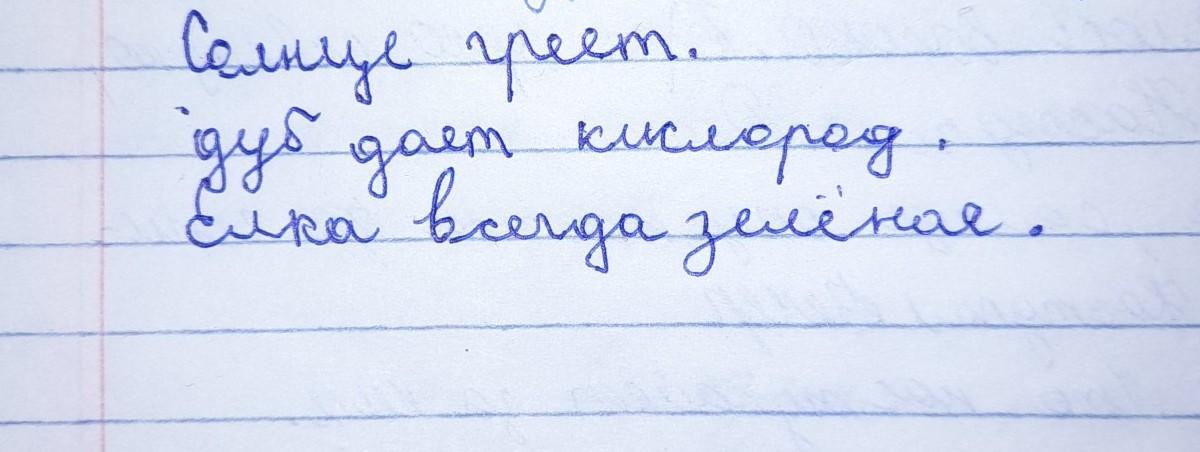 Солнце греет.
дуб дает кислород.
Елка всегда зелёная.